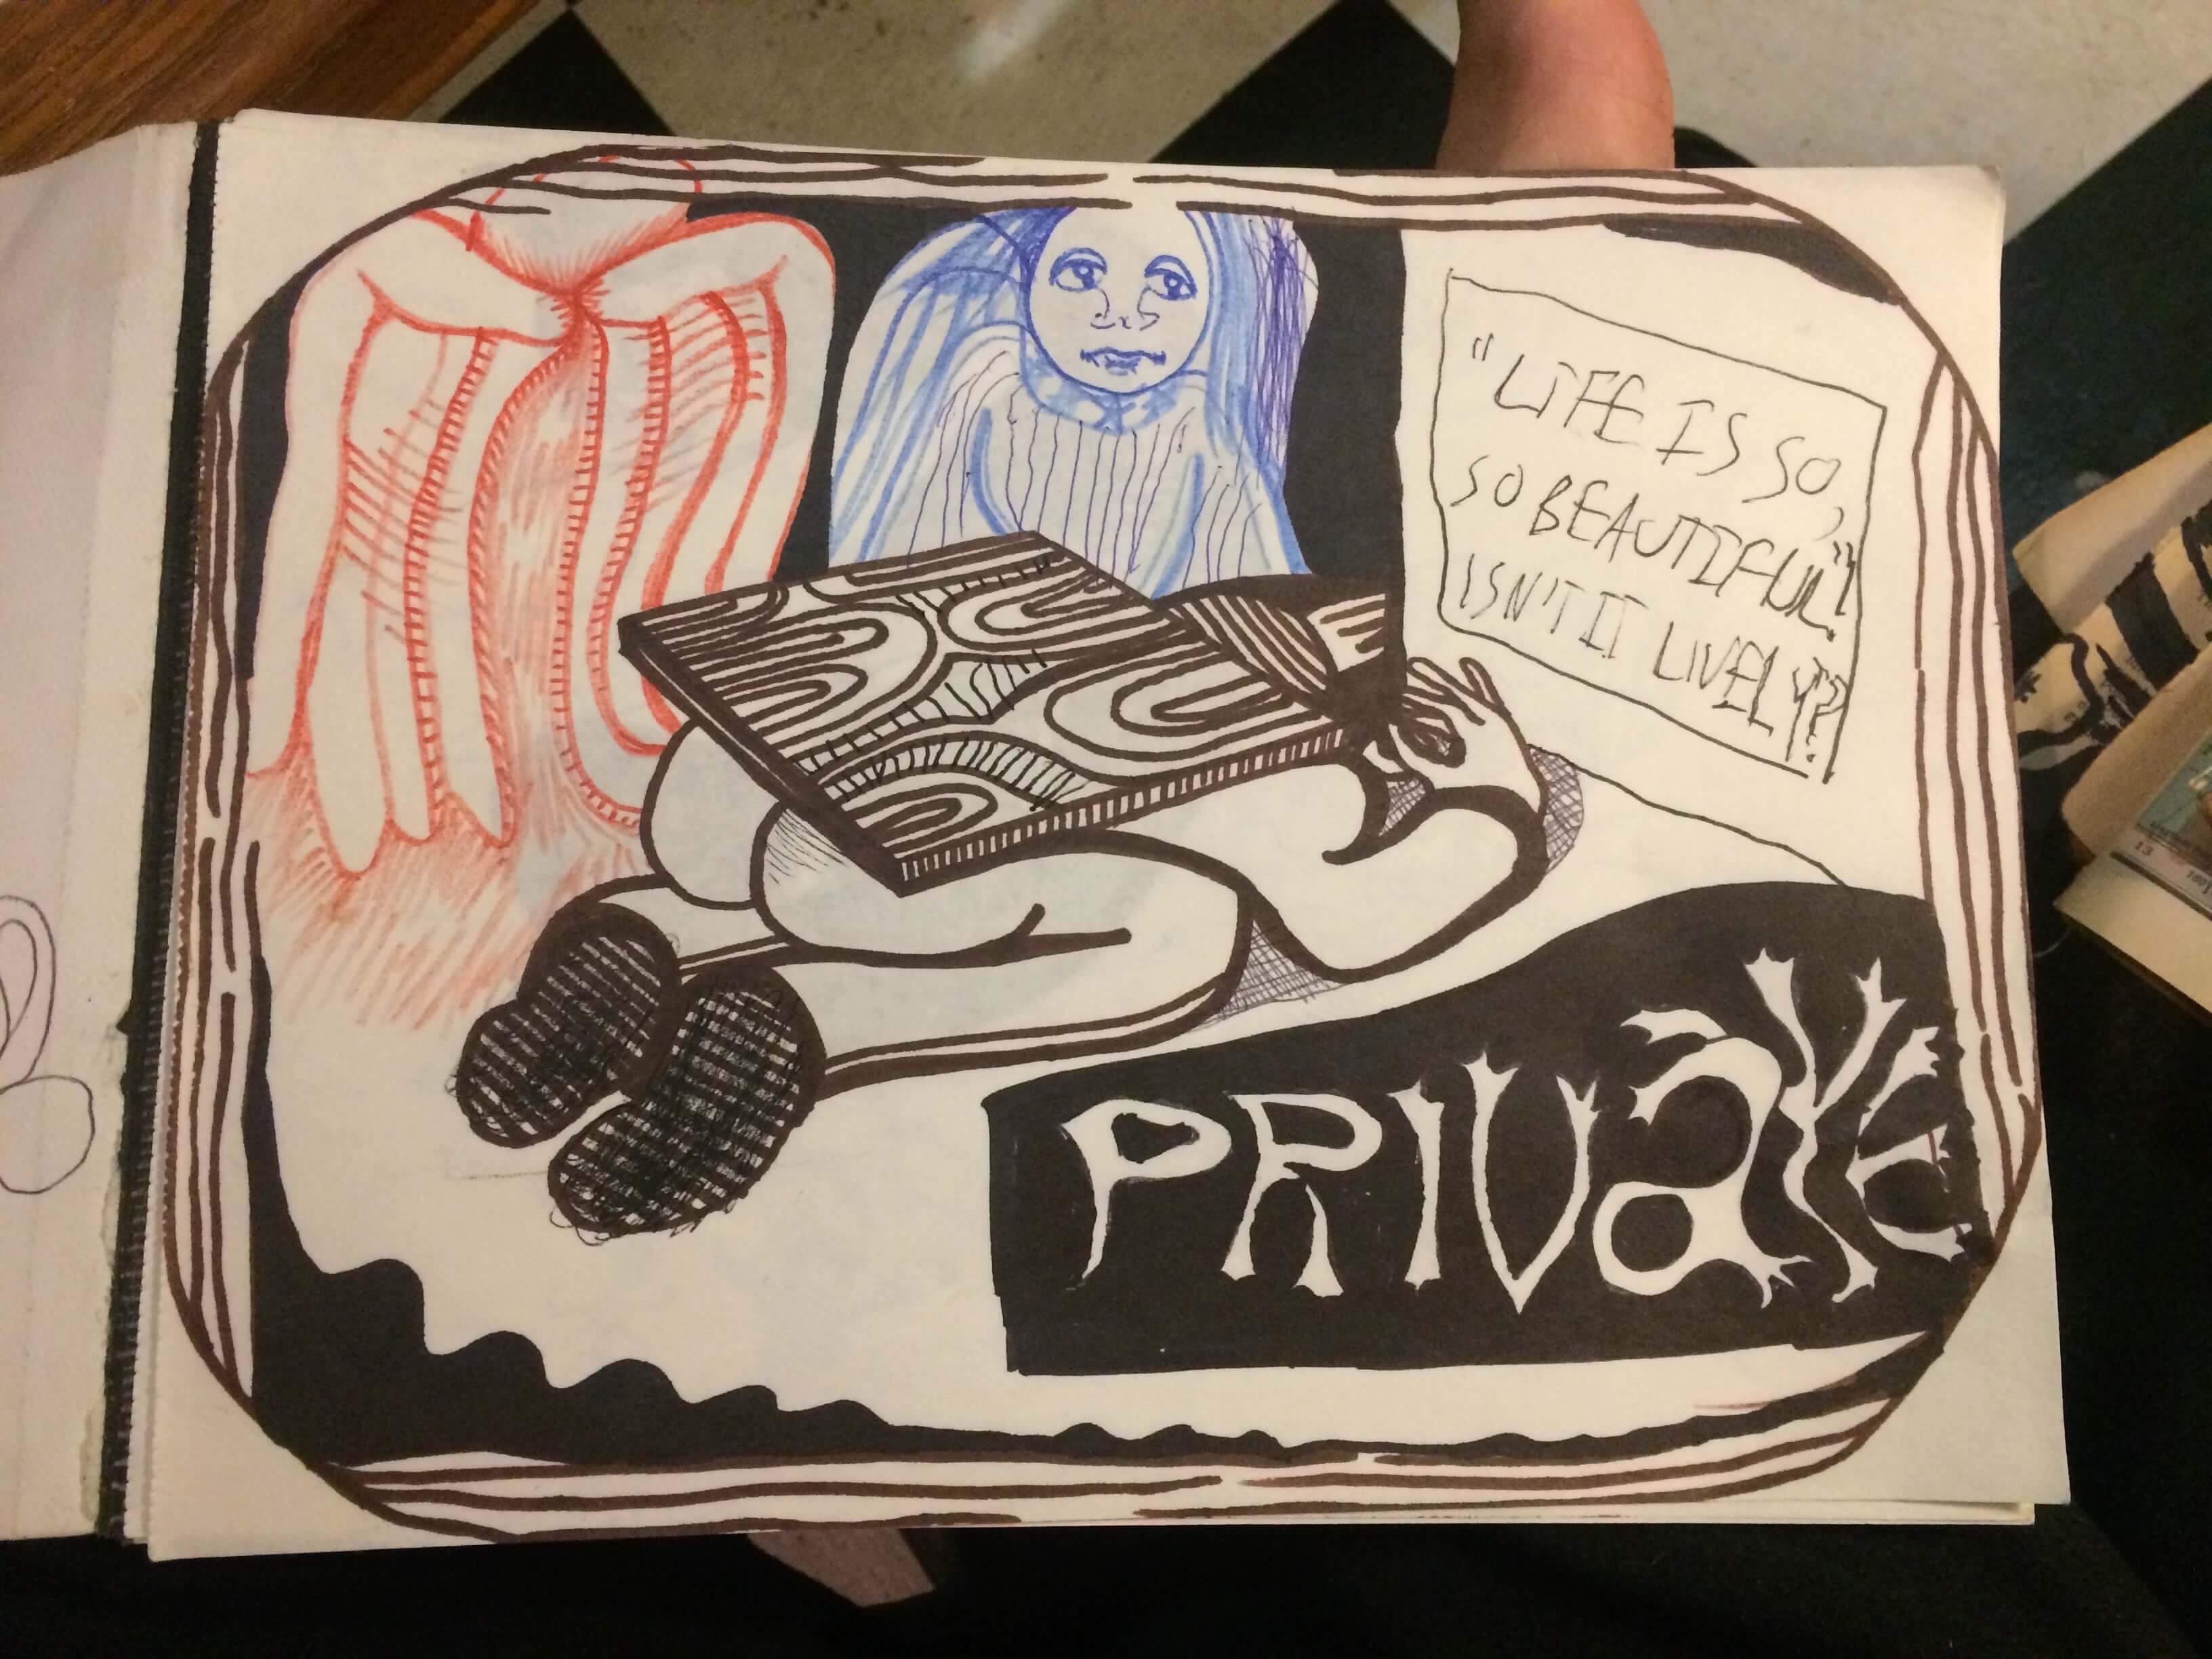 "LIFE IS SO,
SO BEAUTIFUL."
ISN'T IT LIVELY??
PRIVATE